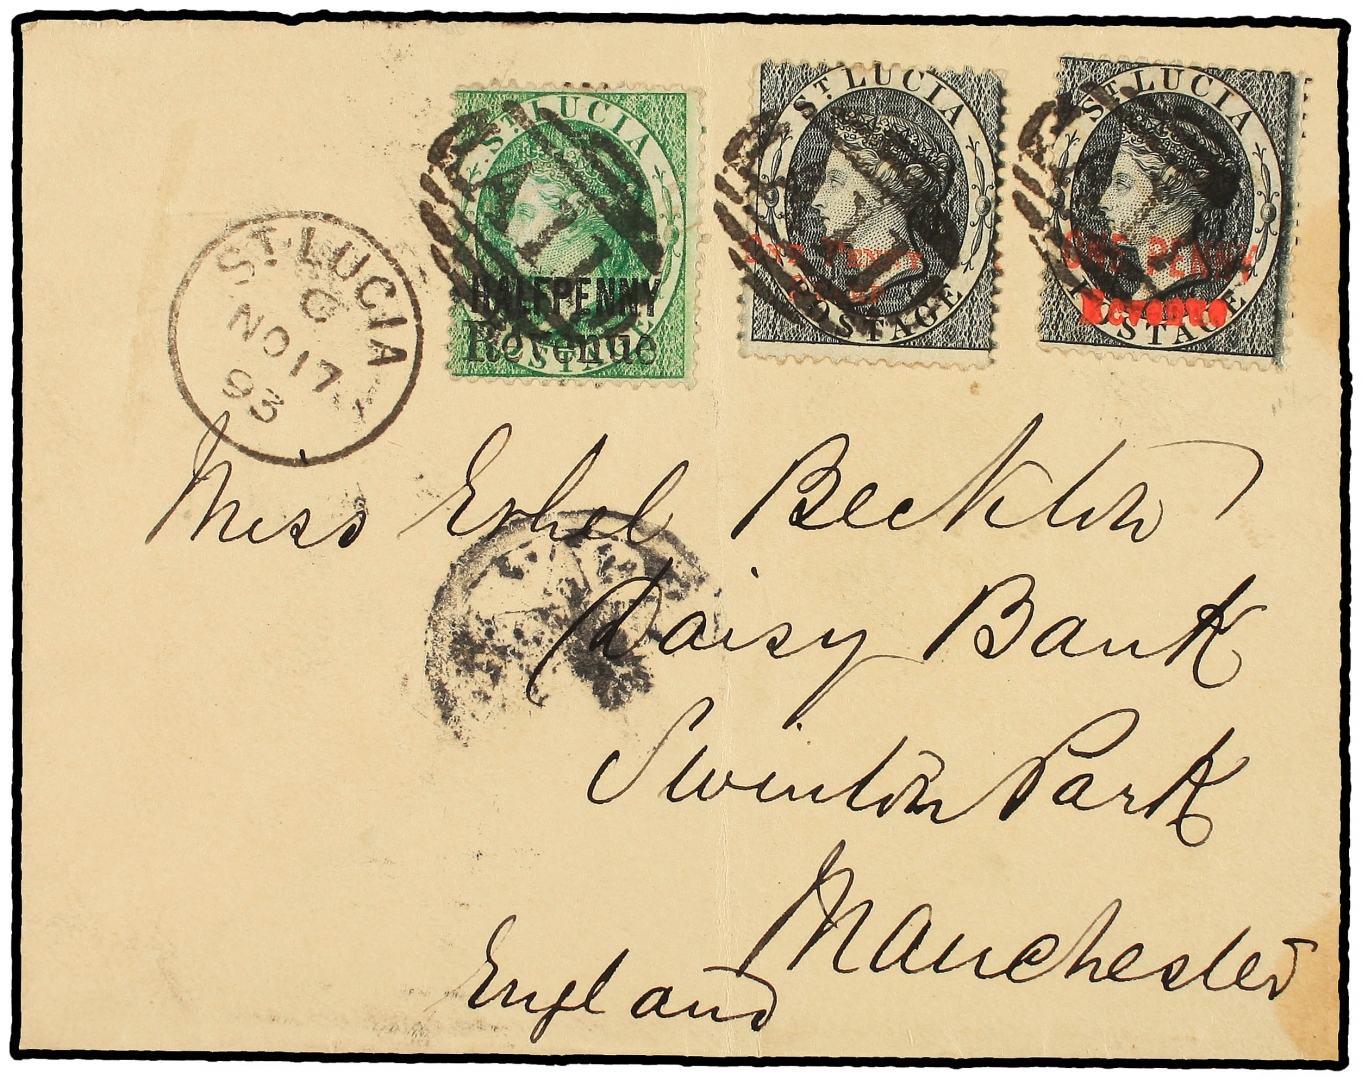 ST. LUCIA
HALFPENNY
Revenue
ST. LUCIA
ONE PENNY
POSTAGE
ST. LUCIA
ONE PENNY
Revenue
ST. LUCIA
C
NO 17
93
Miss Ethel Beckton
Daisy Bank
Swinton Park
Manchester
England